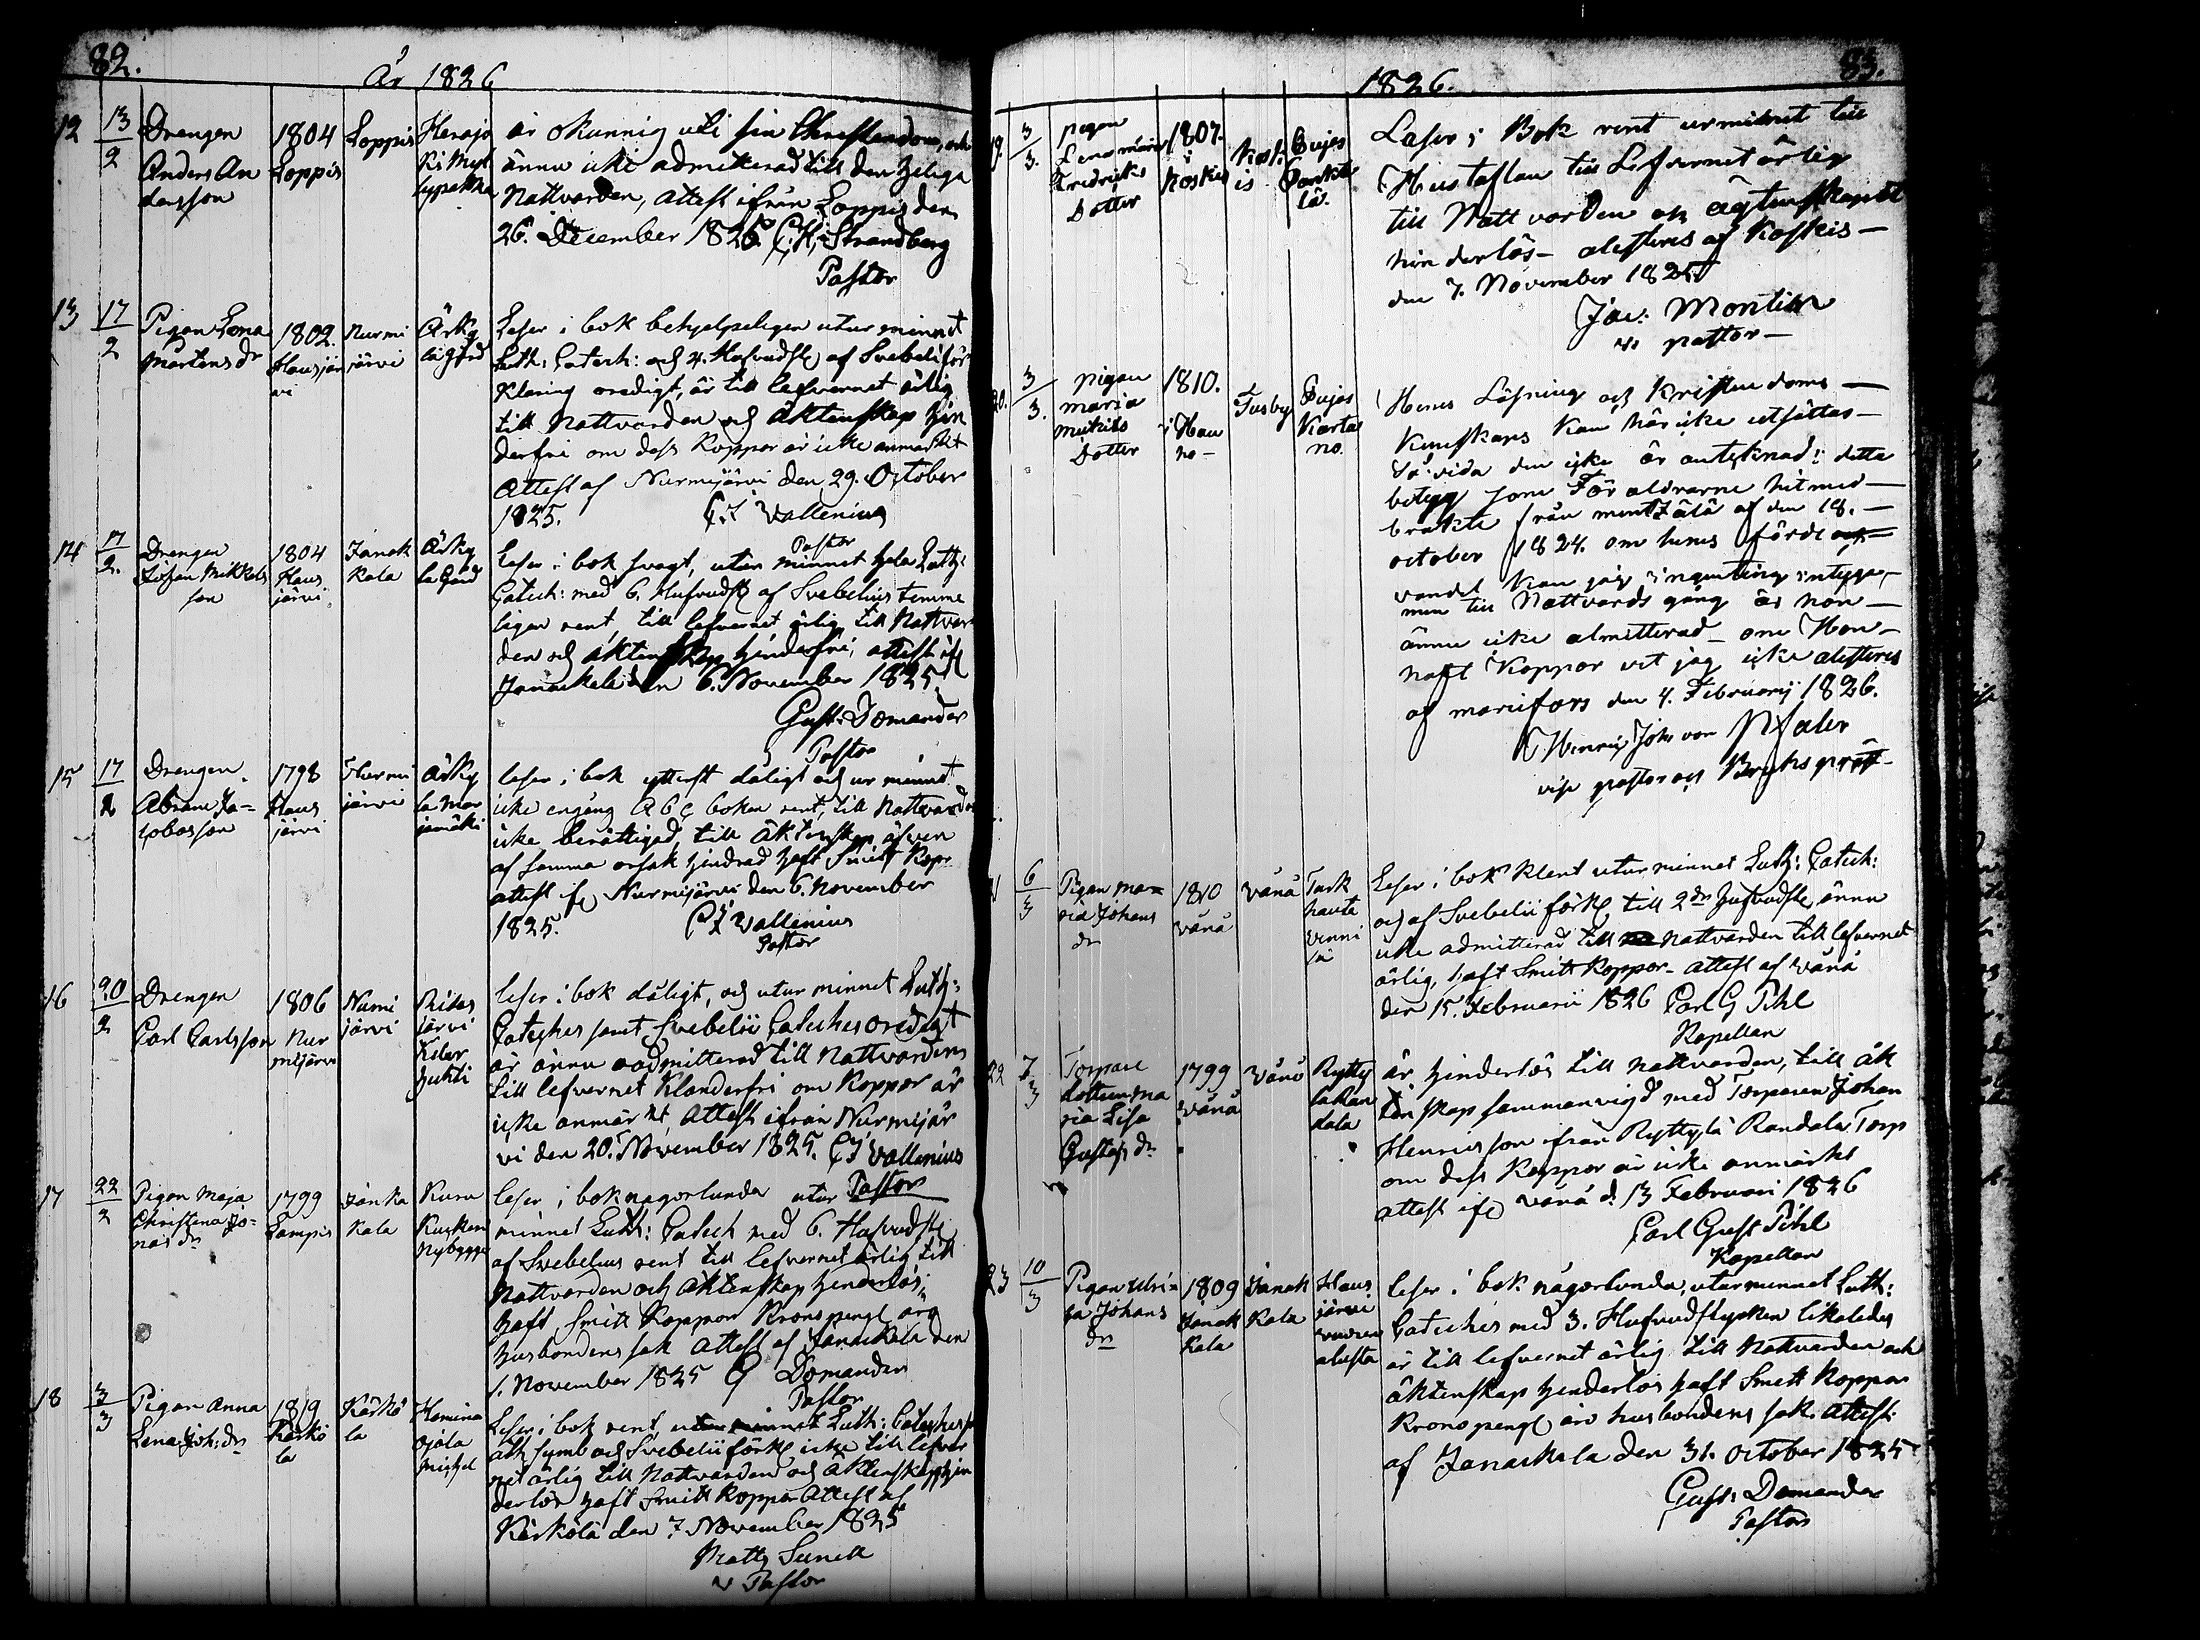 82.
År 1826
12 13/2 Drengen Anders An dersson 1804 Loppis Loppis Herajo
är okunnig uti sin Christendom, och
ännu icke admitterad till den Heliga
Nattvarden, attest ifrån Loppis den
26. December 1825. C. H. Strandberg
Pastor
13 17/2 Pigan Lena Mårtens dr 1802. Hausjär vi Nurmi järvi Årky la gård
Läser i bok behjelpeligen utur minnet
Luth: Catech: och 4. Hufvudst af Svebelii för
klaring oredigt, är till lefvernet ärlig
till Nattvarden och äktenskap hin
derfri om dess Koppor är icke anmärkt
Attest af Nurmijärvi den 29. October
1825. C. J. Vallenius
Pastor
14 17/2. Drengen Johan Mikkels son 1804 Haus järvi Janak kala Årky la Gård
Läser i bok svagt, utur minnet hela Luth:
Catech: med 6. Hufvudst af Svebelius temme
ligen rent, till lefvernet ärlig till Nattvar
den och äktenskap hinderfri, attest if
Janackala den 6. November 1825.
Gust: Domander
Pastor
15 17/2 Drengen Abram Ja= cobsson 1798 Haus järvi Nurmi järvi Årky la Mar jamäki
läser i bok ytterst dåligt och ur minnet
icke engång A b c boken rent, till Nattvarden
icke berättigad, till äktenskap äfven
af samma orsak hindrad haft Smitt Kopr
attest if Nurmijärvi den 6. November
1825. C J Vallenius
Pastor
16 20/2 Drengen Carl Carlsson 1806 Nur mijärvi Nurmi järvi Ridas järvi Keler huhti
läser i bok dåligt, och utur minnet Luth:
Catches samt Svebelii Catches oredigt
är ännu oadmitterad till Nattvarden
till lefvernet Klanderfri om Koppor är
icke anmärkt, Attest ifrån Nurmijär
vi den 20. November 1825. C J Vallenius
Pastor
17 22/2 Pigan Maja Christina Jo= nas dr 1799 Lampis Janka kala Kuru Kusken Nybygge
läser i bok någorlunda utur
minnet Luth: Catech med 6. Hufvudst
af Svebelius rent till lefvernet ärlig till
Nattvarden och äktenskap hinderlös,
haft Smitt Koppor Kronopengr äro
husbondens sak Attest af Janackala den
1. November 1825 G Domander
Pastor
18 3/3 Pigan Anna Lena Joh: dr 1819 Kärkö la Kärkö la Hemina ojala Michel
Läser i bok rent, utur minnet Luth: Cateches
ath symb och Svebelii förkl icke till lefver
net ärlig till Nattvarden och äktenskap hin
derlös haft Smitt Koppor Attest af
Kärkölä den 7 November 1825
Matth Sunell
v Pastor
1826.
83.
19. 3/3. pigan Lena maria Fredriks Dotter 1807. i Koskis Kos= is Pujos
Läser i Bok rent urminnet till
Hustaflan till Lefvernet ärlig
till Nattvarden och ägtenskapet
hinderlös – atesteres af Koskis –
den 7. November 1825
Jac: Montin
v: pastor –
20. 3/3. pigan maria Mickels Dotter 1810. i Hau ho – Tusby Pujos Karta no.
Henes Läsning och Kristendoms –
Kunskaps Kan här icke utsättas –
så vida den icke är anteknad i detta
betyg som Föräldrarne hitmed –
brakte från mentzälä af den 18. –
october 1824. om henes förde och –
vandel Kan jag ingenting intyga, –
men till Nattvards gång är hon –
ännu icke almitterad – om Hon –
haft Koppor vet jag icke atesteres
af mariefors den 4. Februarij 1826.
Henric Joh von Pfaler
vise pastor och Bruks prest –
21 6/3 Pigan Ma= ria Johans dr 1810 Vånå Vånå Turk hauta
Läser i bok klent utur minnet Luth: Catech:
och af Svebelii förkl till 2dra hufvudst, ännu
icke admitterad till Nattvarden till lefvernet
ärlig, haft Smitt Koppor – attest af Vånå
den 15. Februarii 1826 Carl G Pihl
Kapellan
22 7/3 Torpare dottern Ma ria Lisa Gustafs dr 1799 Vånå Vånå Rytty la Ran dala
är hinderlös till nattvarden, till äk
tenskap sammanvigd med Torparen Johan
Henricsson ifrån Ryttylä Randala Torp
om dess Koppor är icke anmärkt
attest if Vånå d. 13 Februari 1826
Carl Gust Pihl
Kapellan
23 10/3 Pigan Ulri= ka Johans dr 1809 Janak kala Janak kala Haus järvi
läser i bok någorlunda, utur minnet Luth:
Cateches med 3. Hufvudstycken likaledes
är till lefvernet ärlig till Nattvarden och
äktenskap hinderlös haft Smitt Koppor
Kronopengr äro husbondens sak. Attest
af Janackala den 31. October 1825
Gust: Domander
Pastor